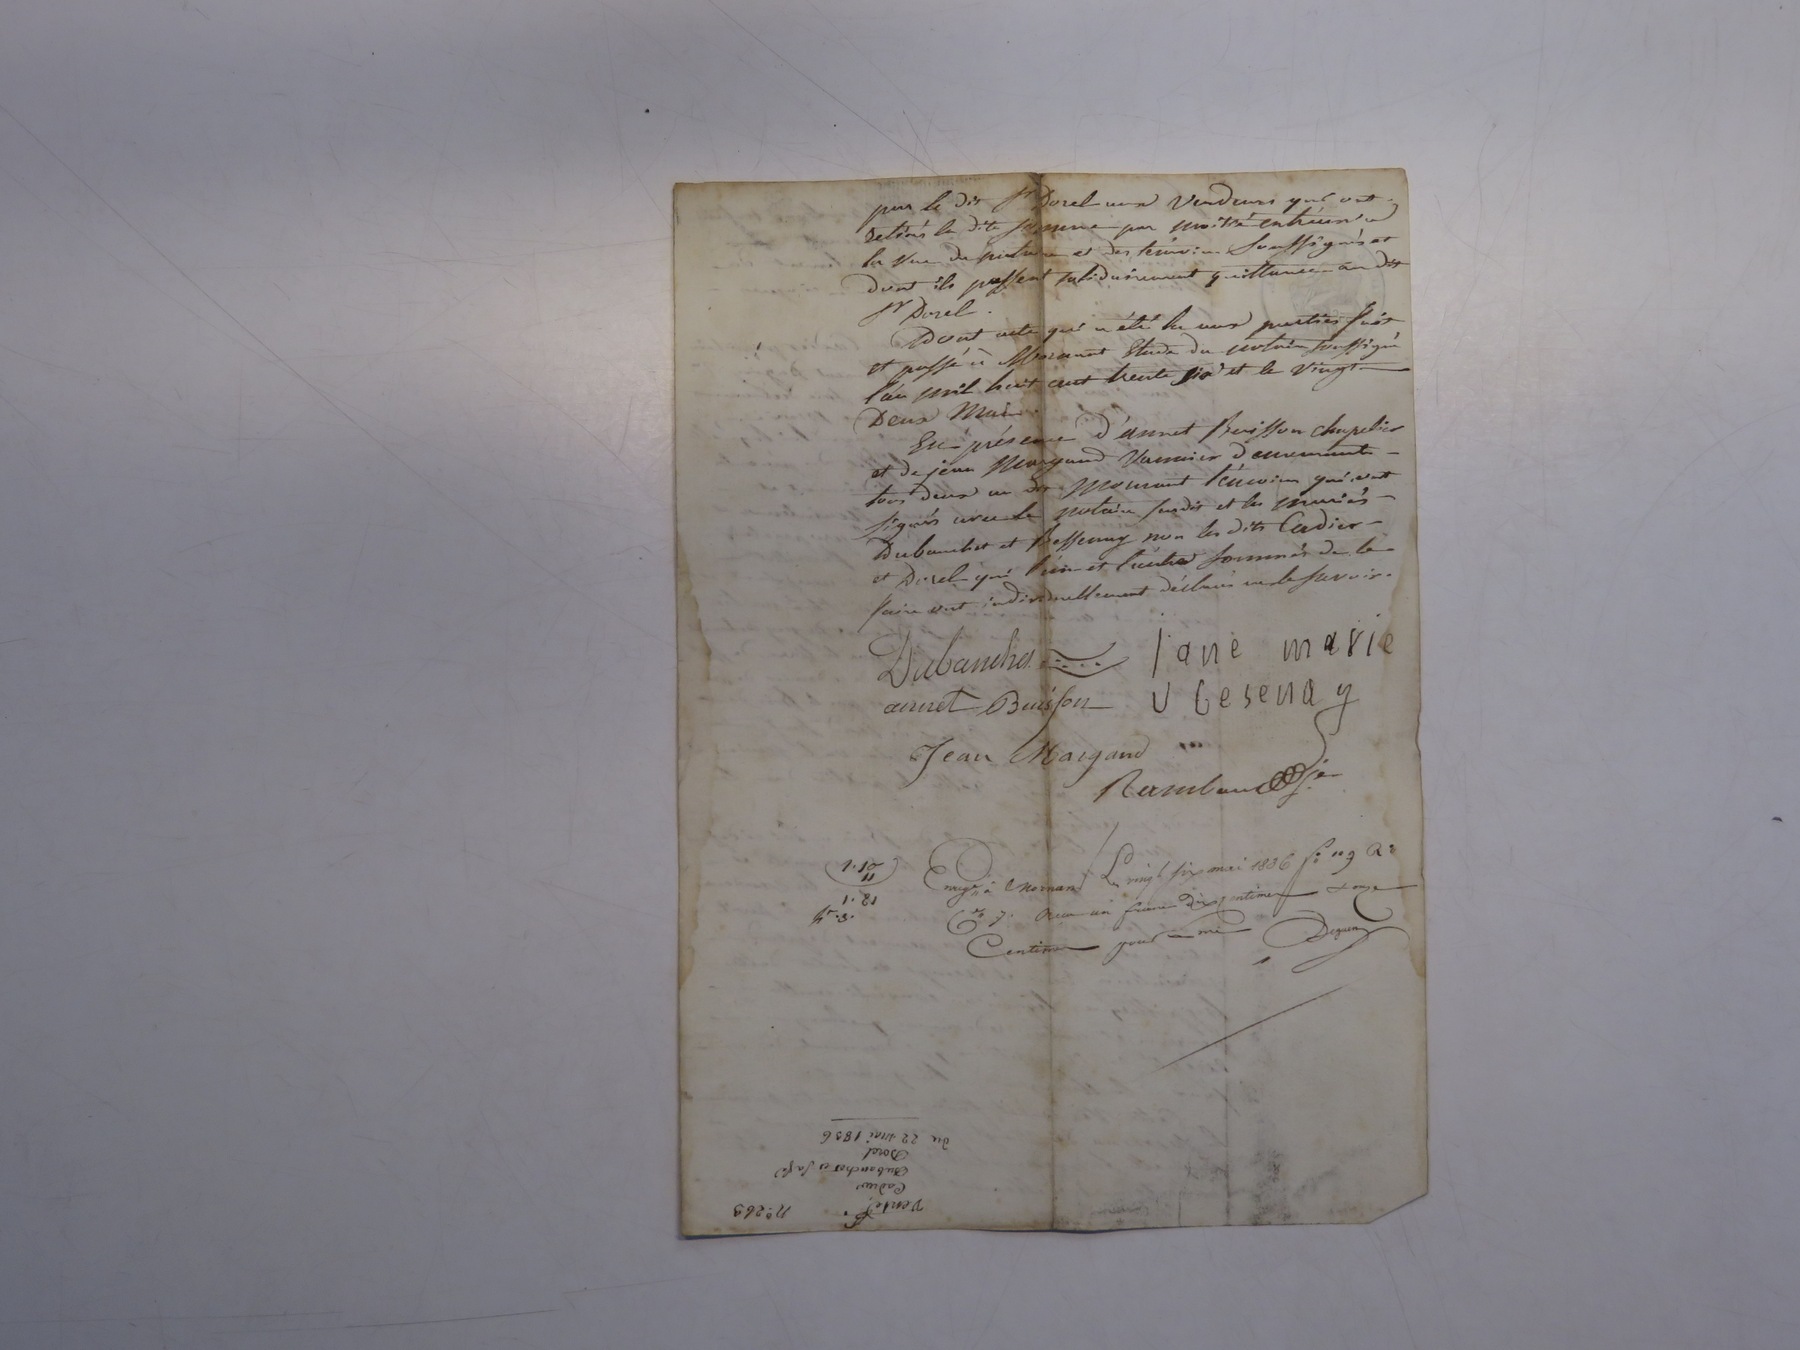 par le dit Sr Dorel aux vendeurs qui ont
retirés la dite somme par moitié entreux a
la vue du notaire et des témoins soussignés et
dont ils passent solidairement quittance au dit
Sr Dorel.
Dont acte qui a été lu aux parties fait
et passé à Mornant Etude du notaire soussigné
l'an mil huit cent trente six et le vingt
Deux Mai.
En présence d'annet Buisson chapelier
et de jean Margand Vannier demeurants
tous deux au dit Mornant témoins qui ont
signés avec le notaire susdit et les mariés
Dubanchet et Bessenay non les dits Cadier
et Dorel qui l'un et l'autre sommés de le
faire ont individuellement déclaré ne le savoir.
Dubanchet
jane marie
annet Buisson
besenay
Jean Margand
Rambaud
Enregé à Mornant Le vingt six mai 1836 fo 119 Ro
Co 7. Reçu un franc dix centimes & onze
Centimes pour
1.01
11
1.12
No 263
Vente
Cadier
Dubanchet et sa fe
Dorel
du 22 mai 1836